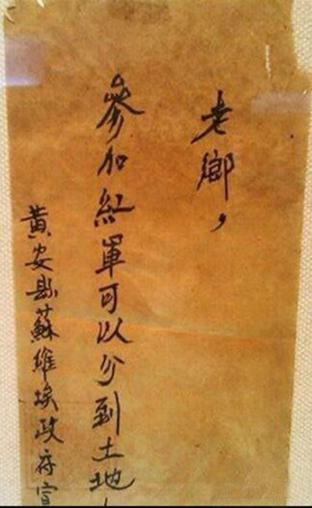 老鄉，
參加紅軍可以分到土地
黃安縣蘇維埃政府宣